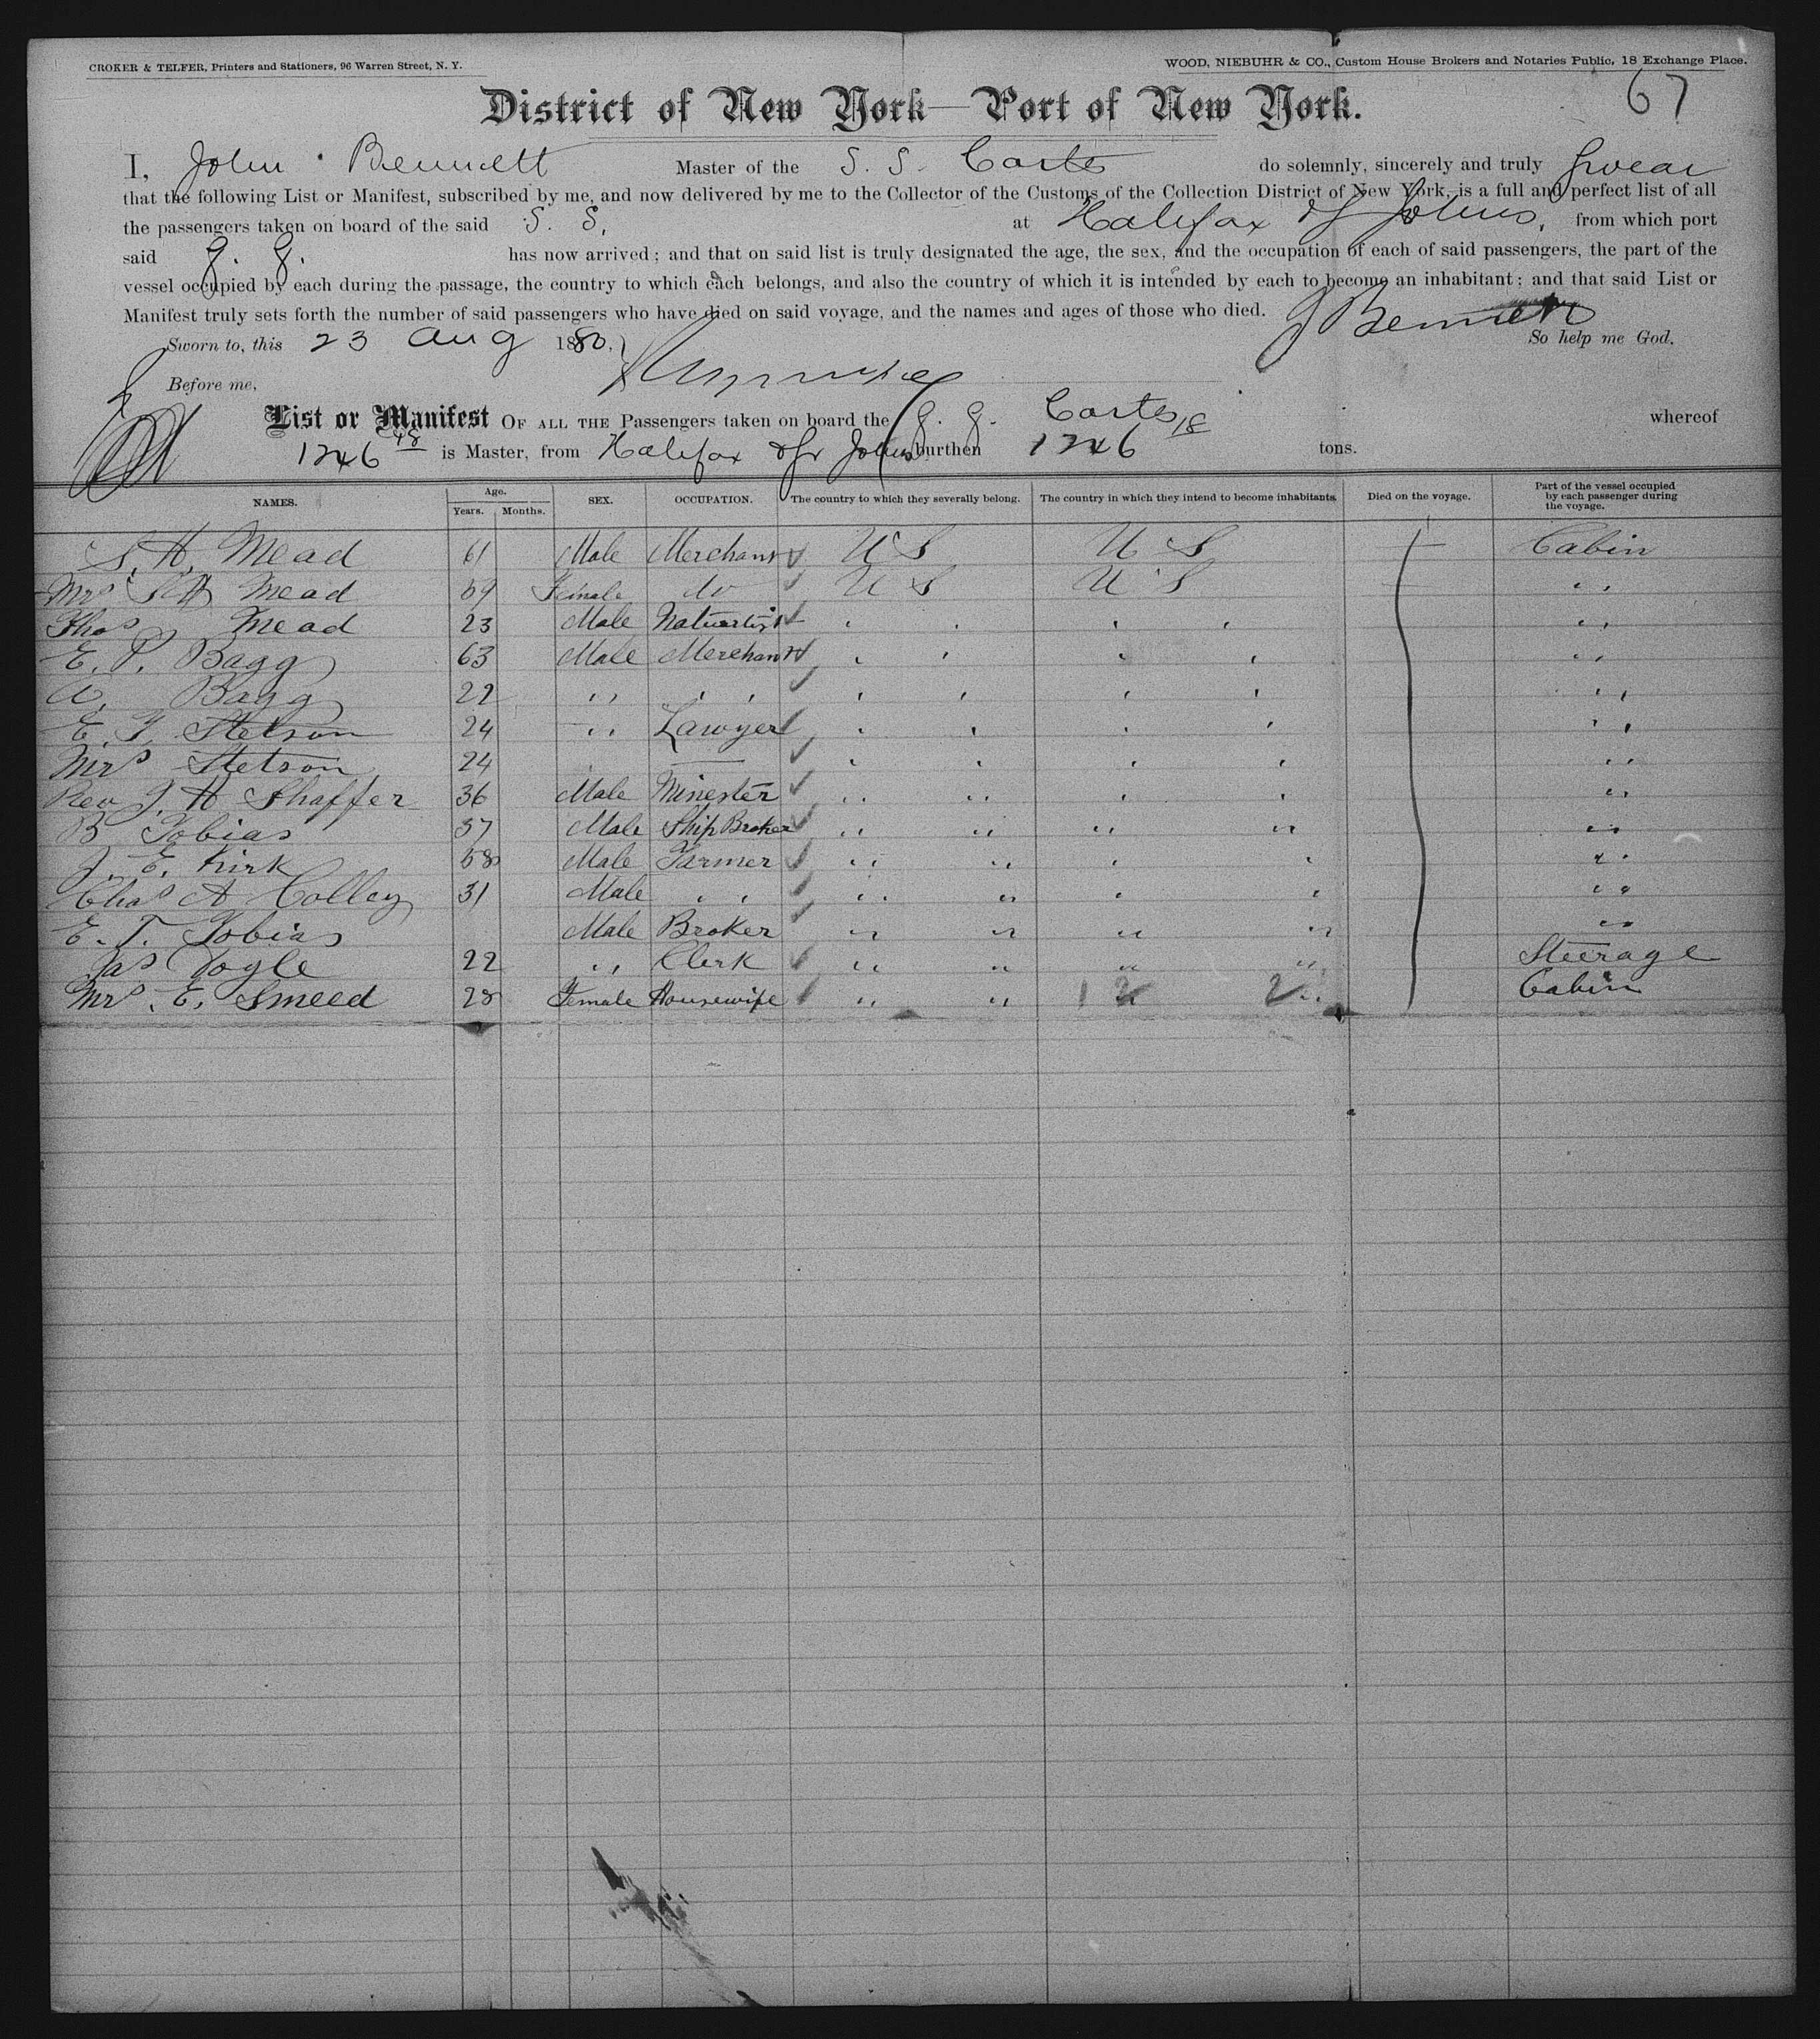 CROKER & TELFER, Printers and Stationers, 96 Warren Street, N. Y. WOOD, NIEBUHR & CO., Custom House Brokers and Notaries Public, 18 Exchange Place.
67
District of New York—Port of New York.
I, John Bennett Master of the S. S. Cortes do solemnly, sincerely and truly swear
that the following List or Manifest, subscribed by me, and now delivered by me to the Collector of the Customs of the Collection District of New York, is a full and perfect list of all
the passengers taken on board of the said S. S. at Halifax & St Johns, from which port
said S. S. has now arrived; and that on said list is truly designated the age, the sex, and the occupation of each of said passengers, the part of the
vessel occupied by each during the passage, the country to which each belongs, and also the country of which it is intended by each to become an inhabitant; and that said List or
Manifest truly sets forth the number of said passengers who have died on said voyage, and the names and ages of those who died. J Bennett
Sworn to, this 23 Aug 1880, So help me God.
Before me,
List or Manifest OF ALL THE Passengers taken on board the S. S. Cortes whereof
1246 48 is Master, from Halifax & St Johns burthen 1246 18 tons.
NAMES. Age. Years. Months. SEX. OCCUPATION. The country to which they severally belong. The country in which they intend to become inhabitants. Died on the voyage. Part of the vessel occupied by each passenger during the voyage.
S. H. Mead 61 Male Merchant U S U S Cabin
Mrs S H Mead 59 Female do U S U S " "
Thos Mead 23 Male ' ' ' ' " "
E. P. Bagg 63 Male Merchant ' ' ' ' " "
A. Bagg 22 " " " ' ' ' ' " "
E. T. Stetson 24 " " Lawyer ' ' ' ' " "
Mrs Stetson 24 — ' ' ' ' " "
Rev J. H Shaffer 36 Male Minester " " ' ' " "
B Tobias 37 Male Ship Broker " " " " " "
J. E. Kirk 58 Male Farmer " " ' ' " "
Chas A Colley 31 Male " " " " ' ' " "
E. T. Tobias Male Broker " " " " " "
Jas Fogle 22 " " Clerk " " " " Steerage
Mrs. E. Smeed 28 Female Housewife " " 12 " 2 " Cabin